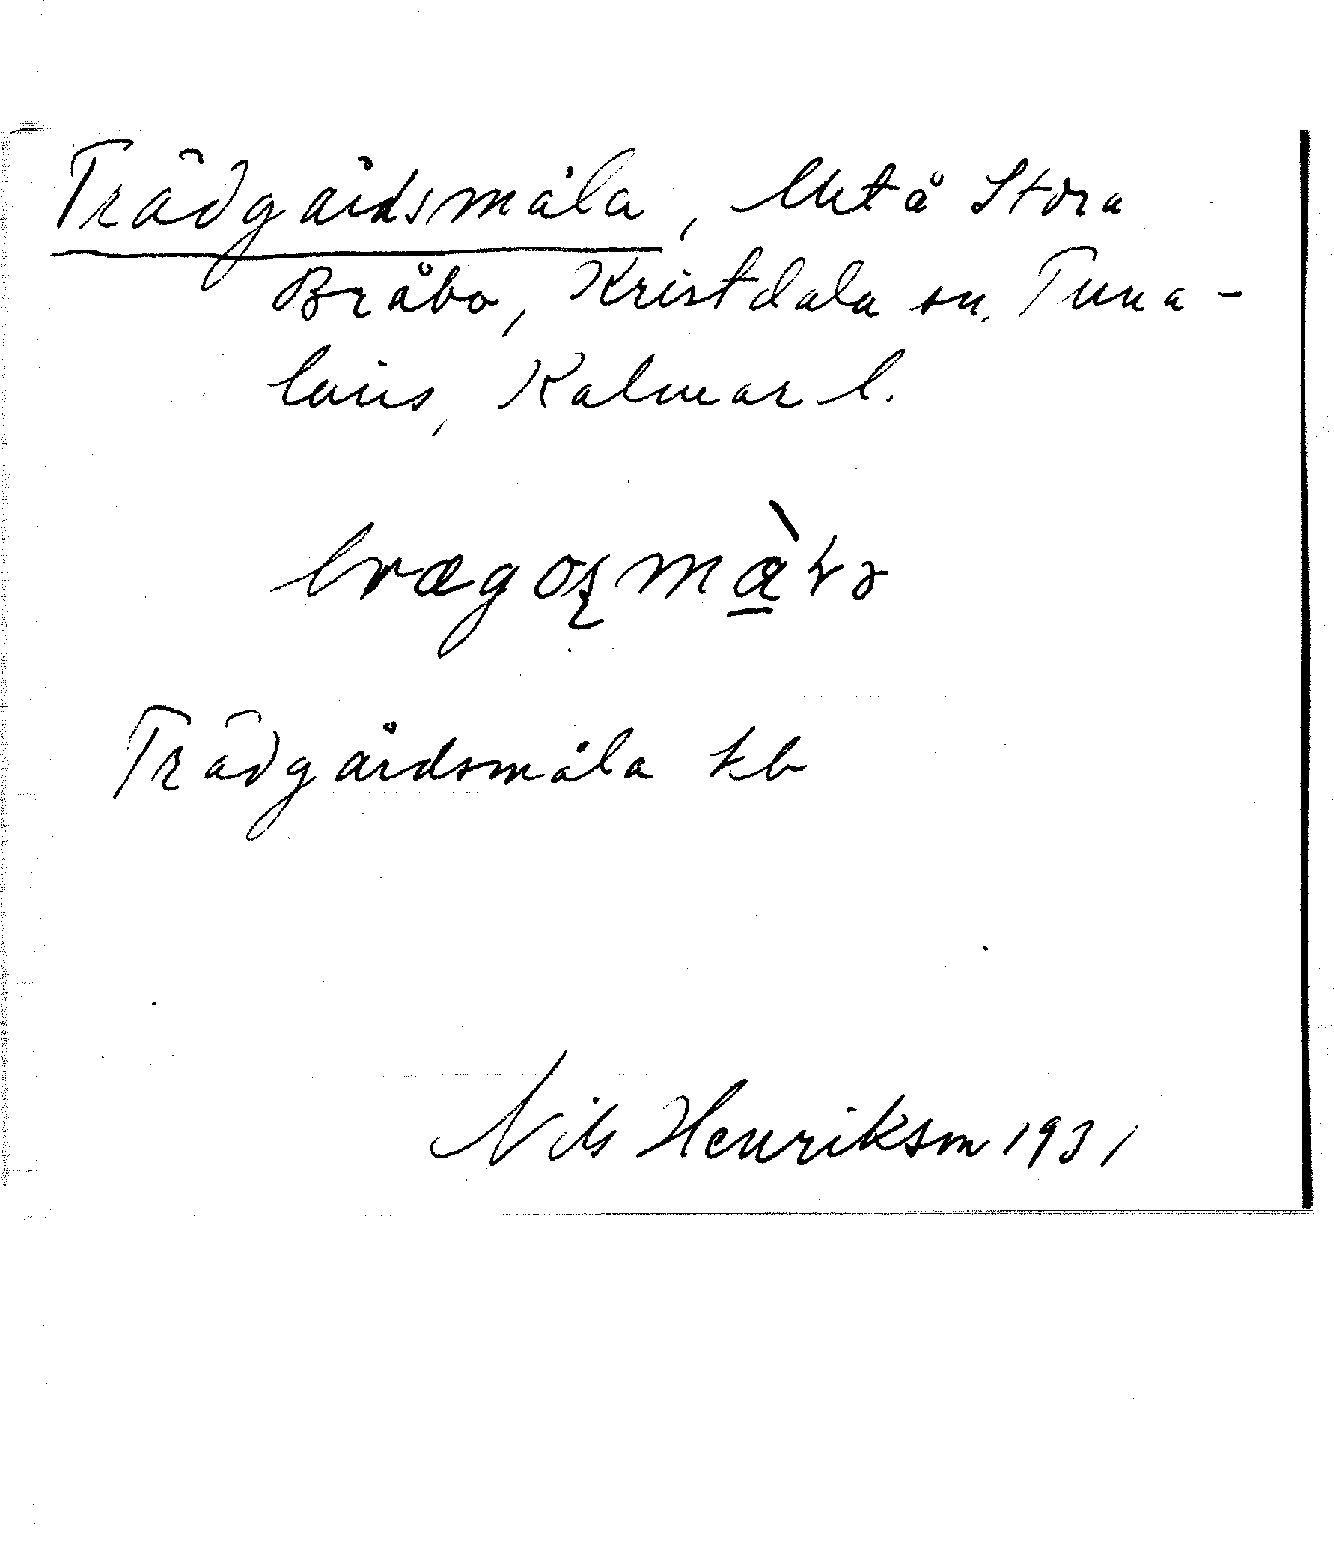 Trädgårdsmåla, Ut å Stora
Bråbo, Kristdala sn. Tuna-
läns, Kalmar l.
Trädgårdsmåla kb
Nils Henrikson 1931